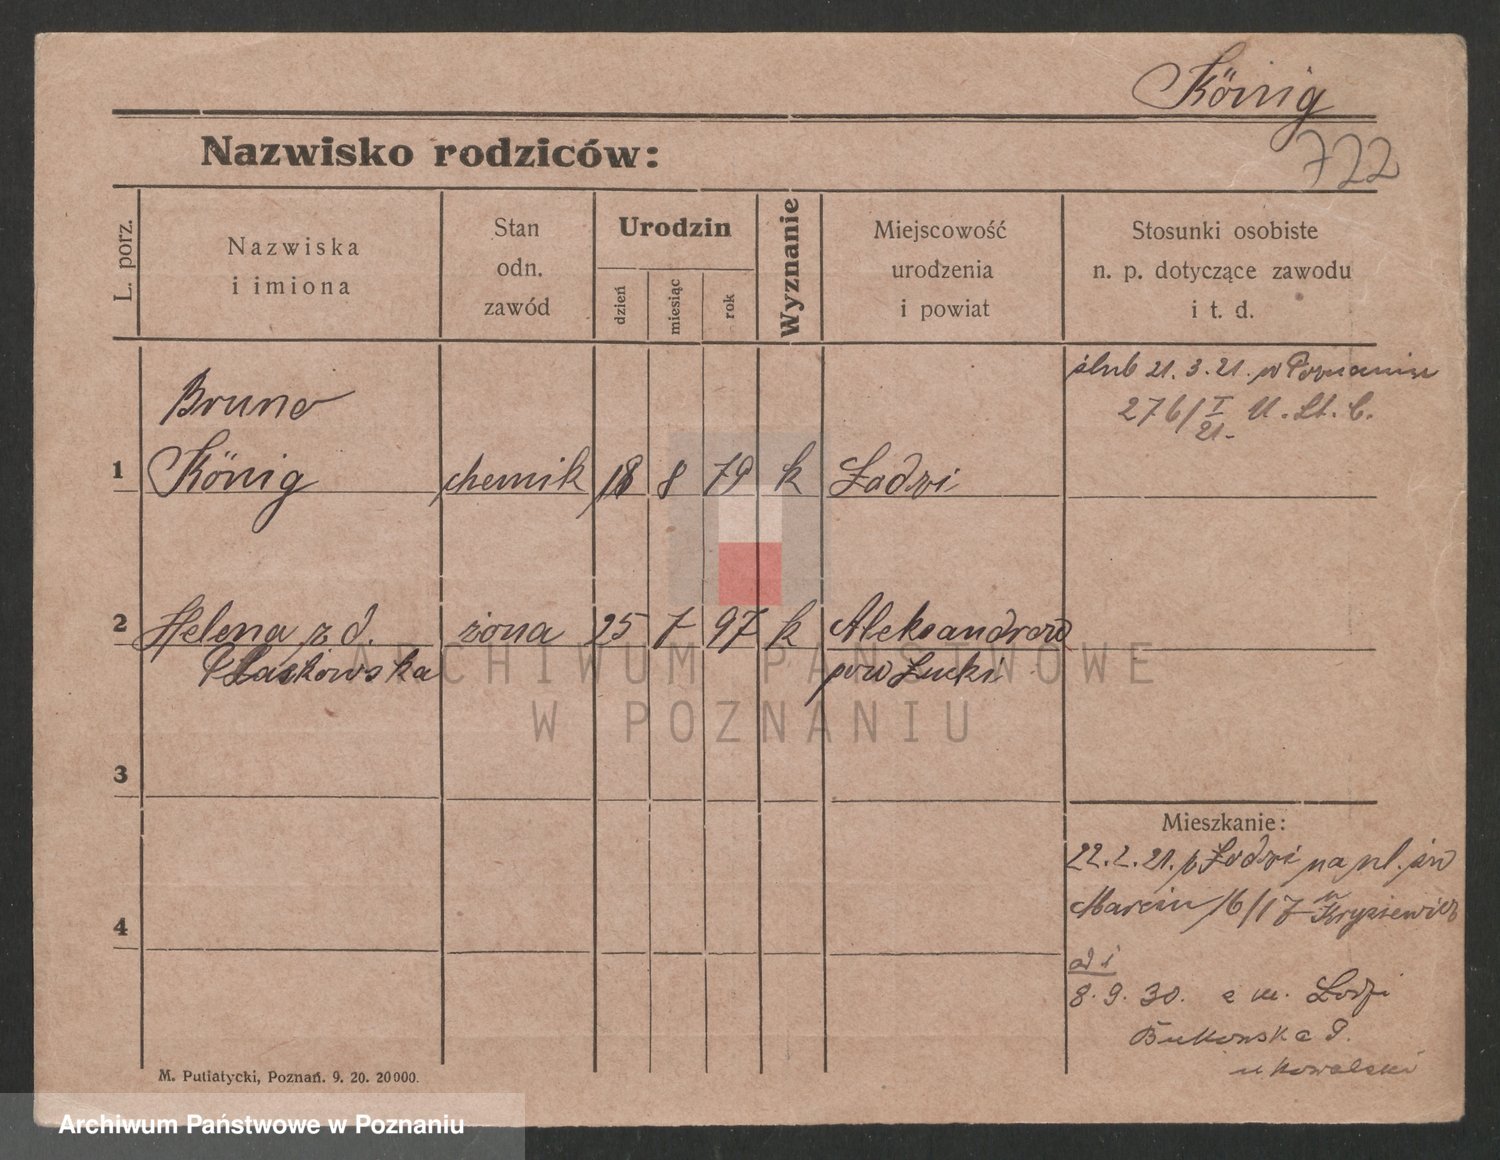 König
722
Nazwisko rodziców:
L. porz.
Nazwiska
i imiona
Stan
odn.
zawód
Urodzin
dzień
miesiąc
rok
Wyznanie
Miejscowość
urodzenia
i powiat
Stosunki osobiste
n. p. dotyczące zawodu
i t. d.
ślub 21. 3. 21. w Poznaniu
276/I 21. U. St. C.
Bruno
1 König chemik 18 8 79 k Łodzi
2 Helena z d. żona 25 7 97 k Aleksandrow
pow Łucki
ARCHIWUM PAŃSTWOWE
W POZNANIU
3
Mieszkanie:
22. 2. 21. Łodzi na pl. św
Marcin 16/17 Krysiewicz
4
8. 9. 30. z m. Lodzi
Bukowska
u Kowalski
M. Putiatycki, Poznań. 9. 20. 20000.
Archiwum Państwowe w Poznaniu